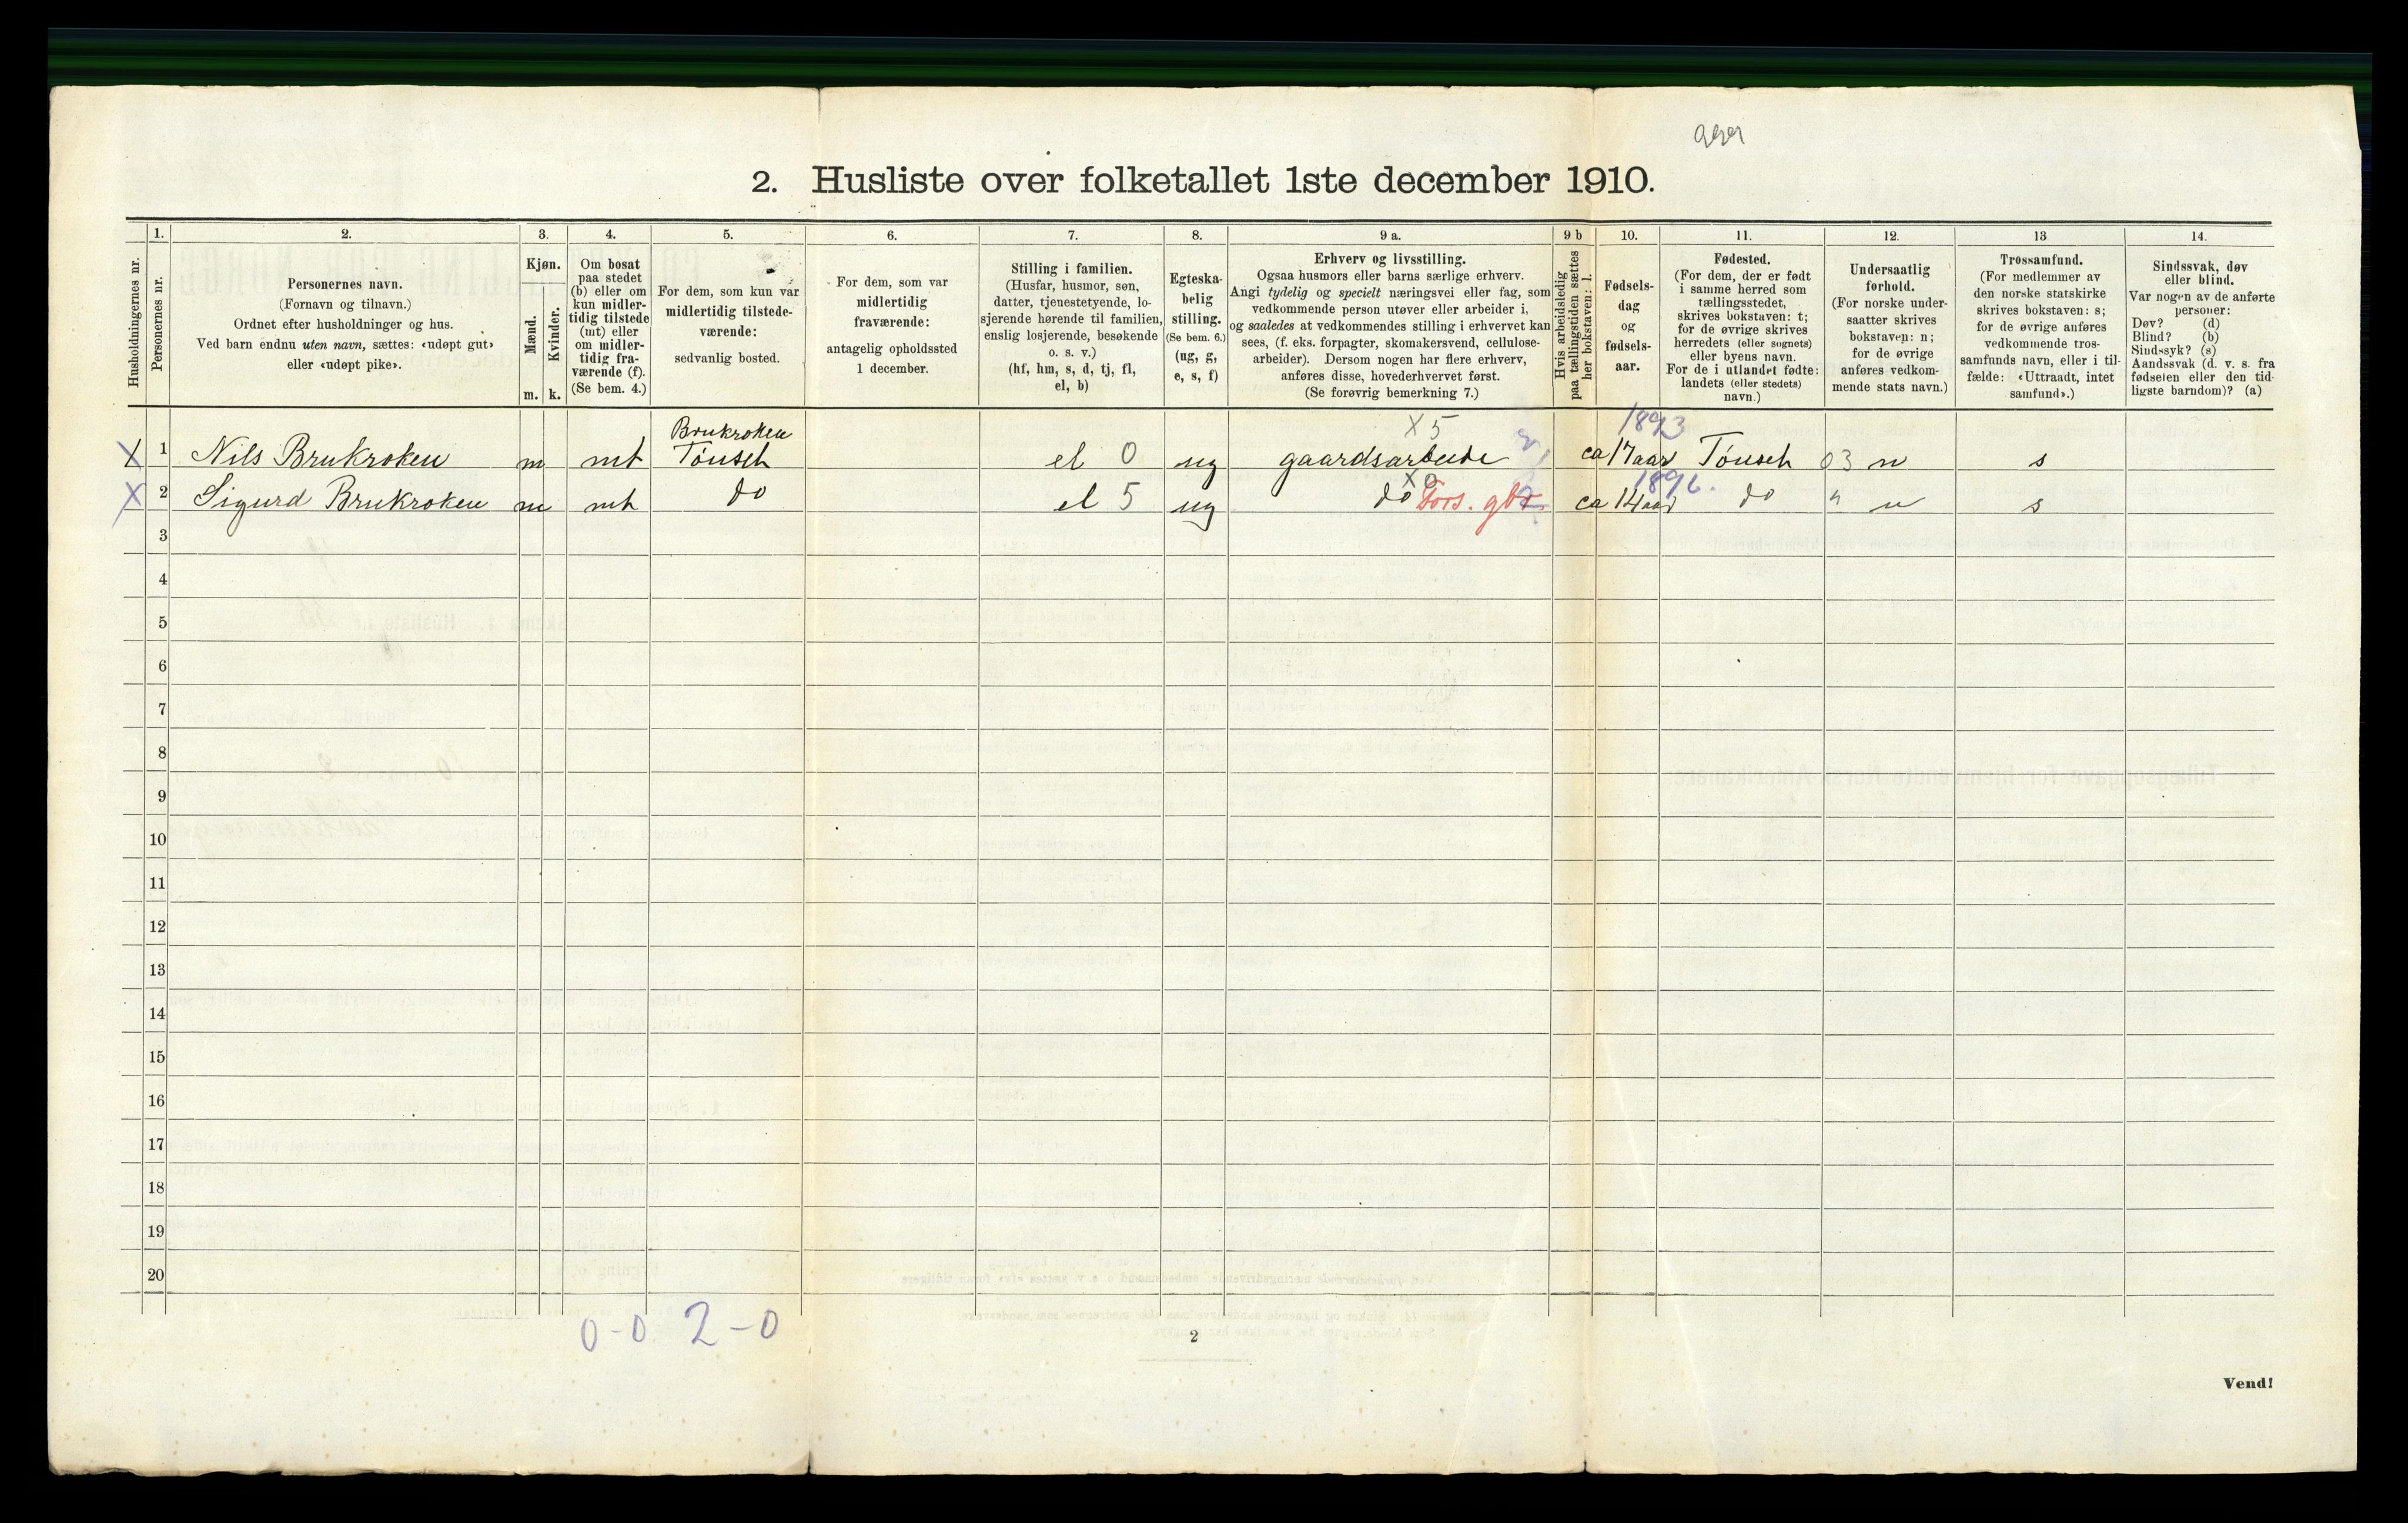 2. Husliste over folketallet 1ste december 1910.
Husholdningernes nr.
1.
Personernes nr.
2.
Personernes navn.
(Fornavn og tilnavn.)
Ordnet efter husholdninger og hus.
Ved barn endnu uten navn, sættes: «udøpt gut»
eller «udøpt pike».
3.
Kjøn.
Mænd.
Kvinder.
m. k.
4.
Om bosat
paa stedet
(b) eller om
kun midler-
tidig tilstede
(mt) eller
om midler-
tidig fra-
værende (f).
(Se bem. 4.)
5.
For dem, som kun var
midlertidig tilstede-
værende:
sedvanlig bosted.
6.
For dem, som var
midlertidig
fraværende:
antagelig opholdssted
1 december.
7.
Stilling i familien.
(Husfar, husmor, søn,
datter, tjenestetyende, lo-
sjerende hørende til familien,
enslig losjerende, besøkende
o. s. v.)
(hf, hm, s, d, tj, fl,
el, b)
8.
Egteska-
belig
stilling.
(Se bem. 6.)
(ug, g,
e, s, f)
9 a.
Erhverv og livsstilling.
Ogsaa husmors eller barns særlige erhverv.
Angi tydelig og specielt næringsvei eller fag, som
vedkommende person utøver eller arbeider i,
og saaledes at vedkommendes stilling i erhvervet kan
sees, (f. eks. forpagter, skomakersvend, cellulose-
arbeider). Dersom nogen har flere erhverv,
anføres disse, hovederhvervet først.
(Se forøvrig bemerkning 7.)
9 b
Hvis arbeidsledig
paa tællingstiden sættes
her bokstaven: l.
10.
Fødsels-
dag
og
fødsels-
aar.
11.
Fødested.
(For dem, der er født
i samme herred som
tællingsstedet,
skrives bokstaven: t;
for de øvrige skrives
herredets (eller sognets)
eller byens navn.
For de i utlandet fødte:
landets (eller stedets)
navn.)
12.
Undersaatlig
forhold.
(For norske under-
saatter skrives
bokstaven: n;
for de øvrige
anføres vedkom-
mende stats navn.)
13
Trossamfund.
(For medlemmer av
den norske statskirke
skrives bokstaven: s;
for de øvrige anføres
vedkommende tros-
samfunds navn, eller i til-
fælde: «Uttraadt, intet
samfund».)
14.
Sindssvak, døv
eller blind.
Var nogen av de anførte
personer:
Døv? (d)
Blind? (b)
Sindssyk? (s)
Aandssvak (d. v. s. fra
fødselen eller den tid-
ligste barndom)? (a)
Brukroken X 5 1893
X 1 Nils Brukroken m mt Tønseth el 0 ug gaardsarbeide ca 17 aar Tønseth 03 n s
X 0 1896.
X 2 Sigurd Brukroken m mt do el 5 ug do Fors. gbr ca 14 aar do " n s
3
4
5
6
7
8
9
10
11
12
13
14
15
16
17
18
19
20
0-0 2-0
2
Vend!